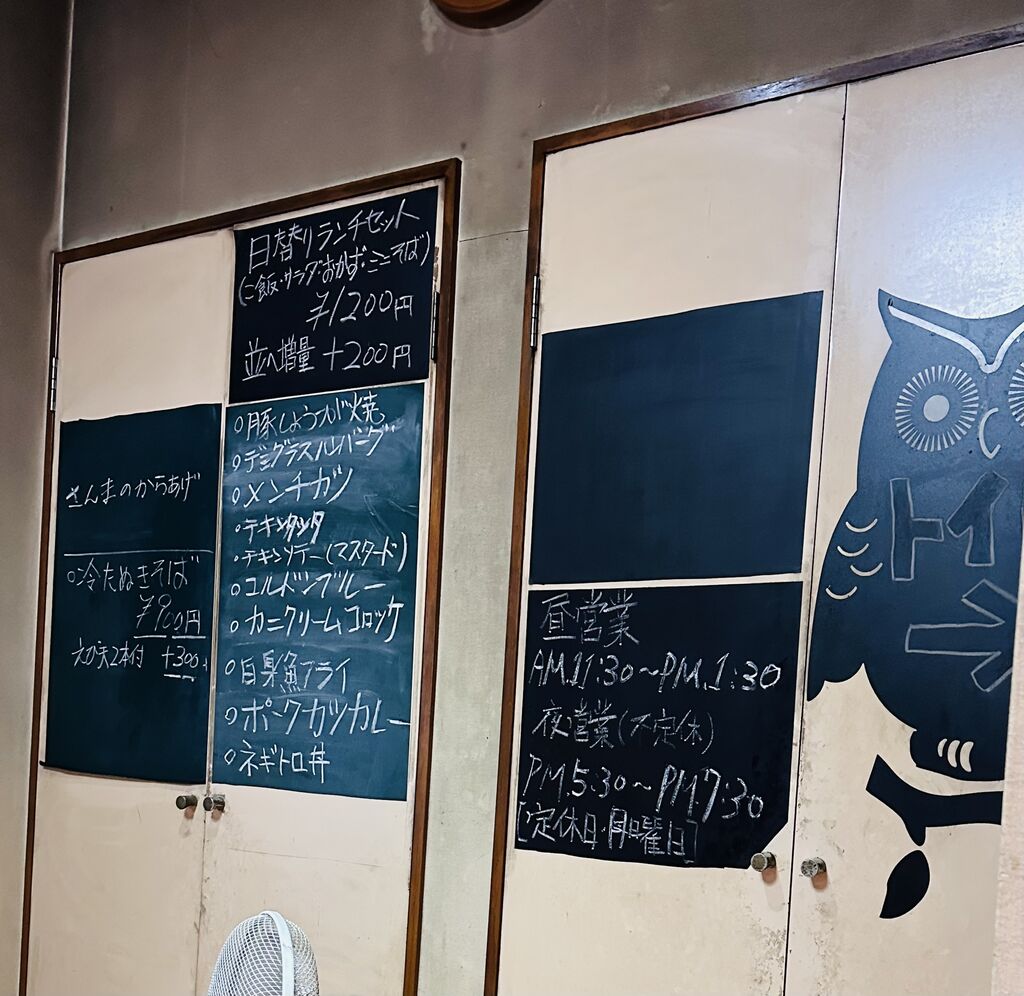 日替りランチセット
(ご飯・サラダ・おかず・ミニそば)
¥1200円
並へ増量 +200円
さんまのからあげ
○冷たぬきそば
¥900円
えび天2本付 +300
○豚しょうが焼
○デミグラスハンバーグ
○メンチカツ
○チキンカツ
○チキンソテー(マスタード)
○コルドンブルー
○カニクリームコロッケ
○白身魚フライ
○ポークカツカレー
○ネギトロ丼
昼営業
AM.11:30〜PM.1:30
夜営業(不定休)
PM.5:30〜PM.7:30
[定休日・月曜日]
トイレ